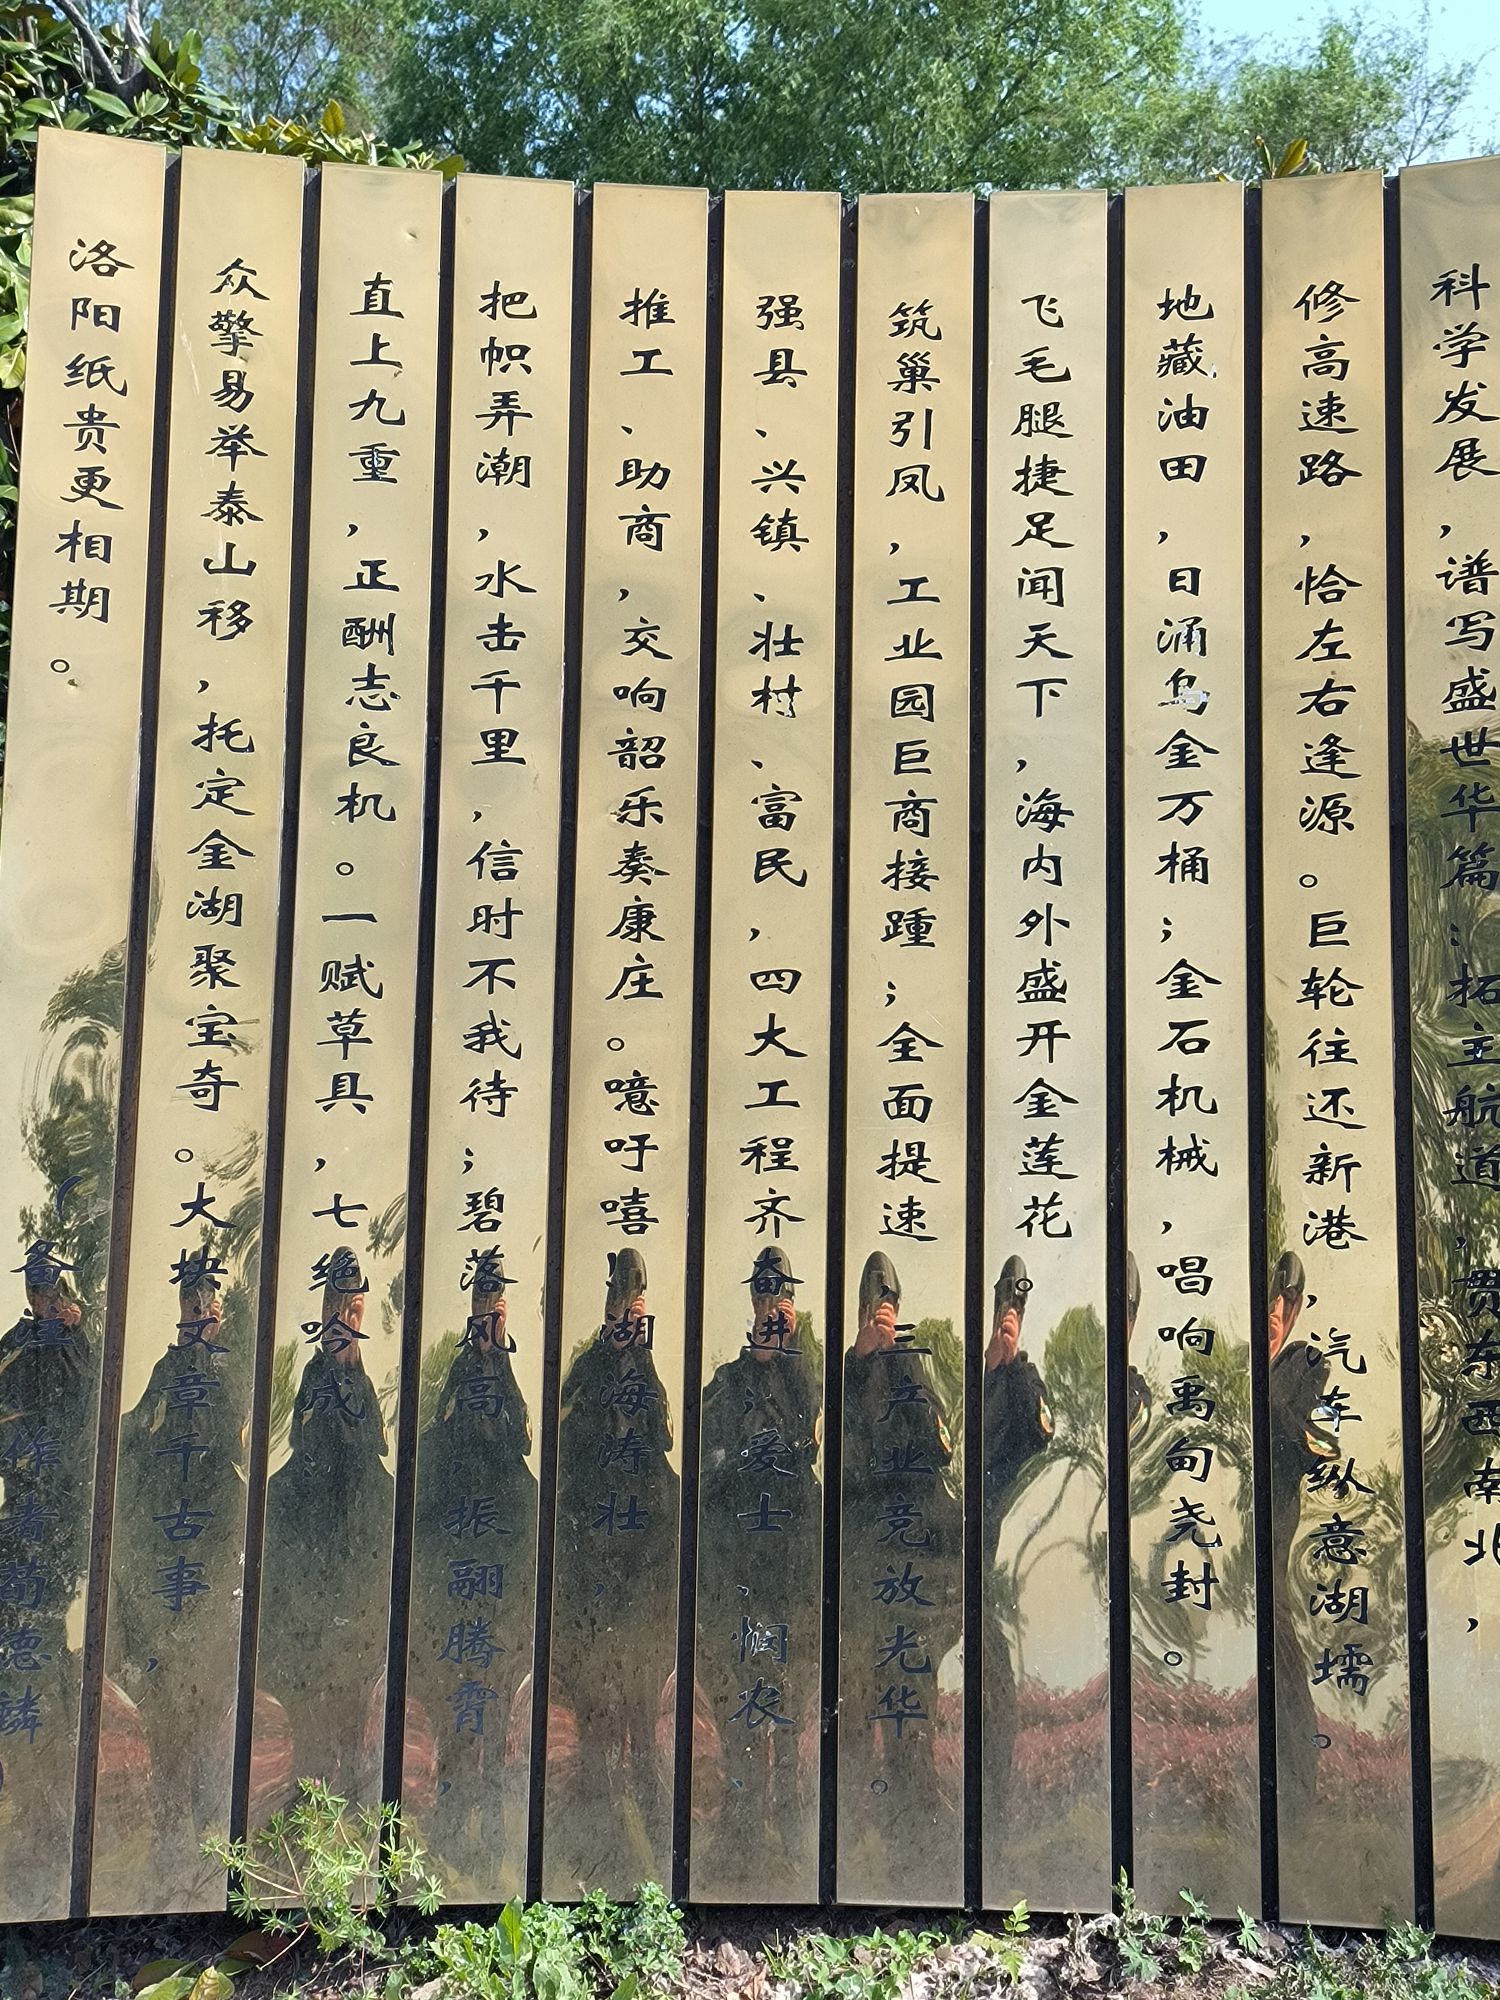 科学发展,谱写盛世华篇;拓主航道,贯东西南北,
修高速路,恰左右逢源。巨轮往还新港,汽车纵意湖壖。
地藏油田,日涌乌金万桶;金石机械,唱响禹甸尧封。
飞毛腿捷足闻天下,海内外盛开金莲花。
筑巢引凤,工业园巨商接踵;全面提速,三产业竞放光华。
强县、兴镇、壮村、富民,四大工程齐奋进;爱士、悯农、
推工、助商,交响韶乐奏康庄。噫吁嘻!湖海涛壮,
把帜弄潮,水击千里,信时不我待;碧落风高,振翮腾霄,
直上九重,正酬志良机。一赋草具,七绝吟成:
众擎易举泰山移,托定金湖聚宝奇。大块文章千古事,
洛阳纸贵更相期。
(备注:作者苟德麟)